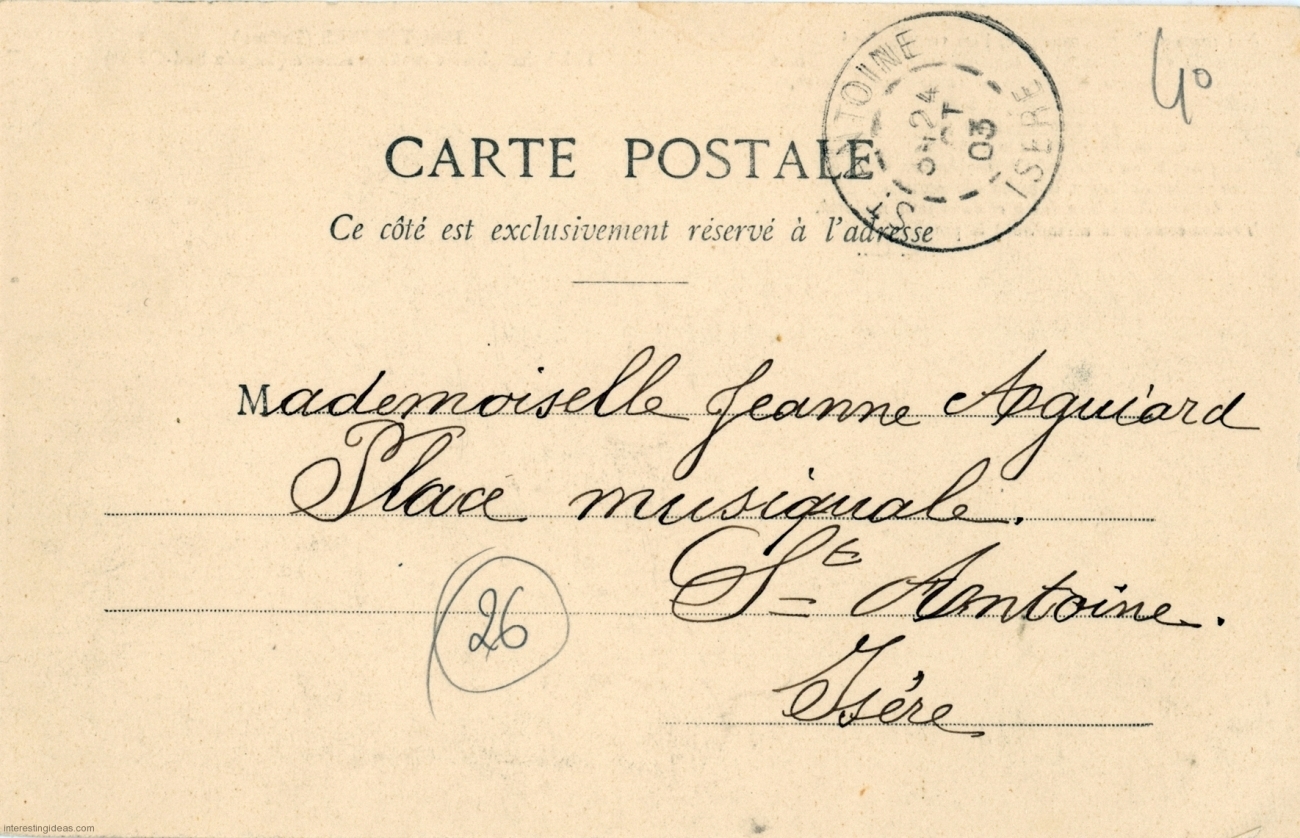 CARTE POSTALE
Ce côté est exclusivement réservé à l'adresse
ST. ANTOINE
24
03
ISERE
40
Mademoiselle Jeanne Aguiard
Place musiquale.
St Antoine.
26
Isére
interestingideas.com